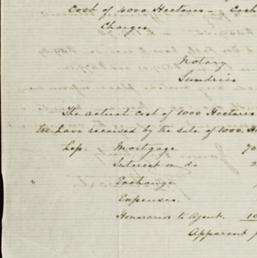 Cost of 4000 Hectares - Exch
Charges
Notary
Sundries
The actual cost of 1000 Hectares
We have received by the sale of 1000 H
Less. Mortgage
Interest on do
Exchange
Expenses.
Honorarium to Agent. 10
Apparent